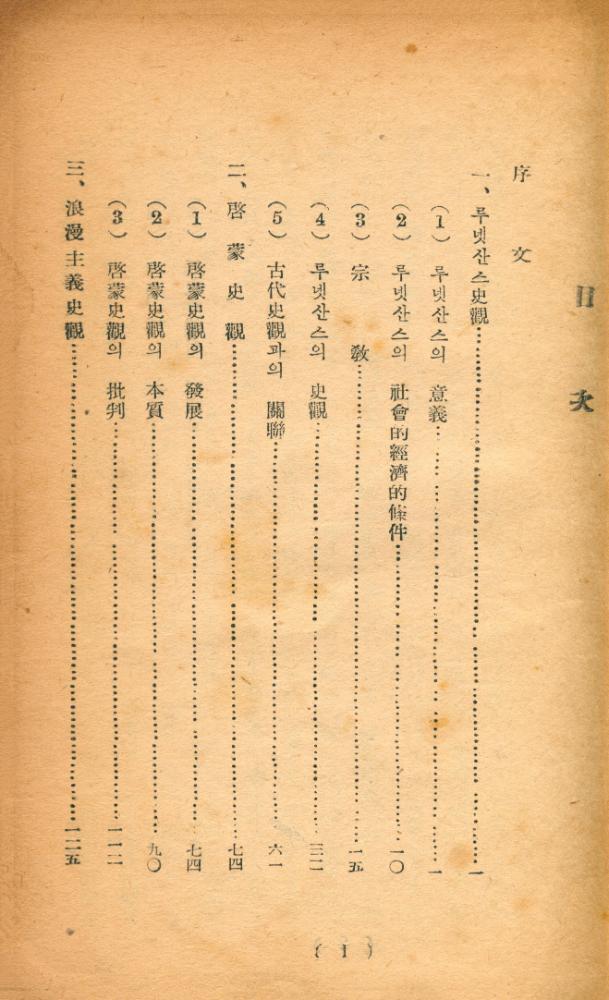 目次
序文
一、루넷산스史觀……………一
(1) 루넷산스의 意義……………一
(2) 루넷산스의 社會的經濟的條件……………一〇
(3) 宗敎……………一五
(4) 루넷산스의 史觀……………三二
(5) 古代史觀과의 關聯……………六一
二、啓蒙史觀……………七四
(1) 啓蒙史觀의 發展……………七四
(2) 啓蒙史觀의 本質……………九〇
(3) 啓蒙史觀의 批判……………一一二
三、浪漫主義史觀……………一二五
( 1 )